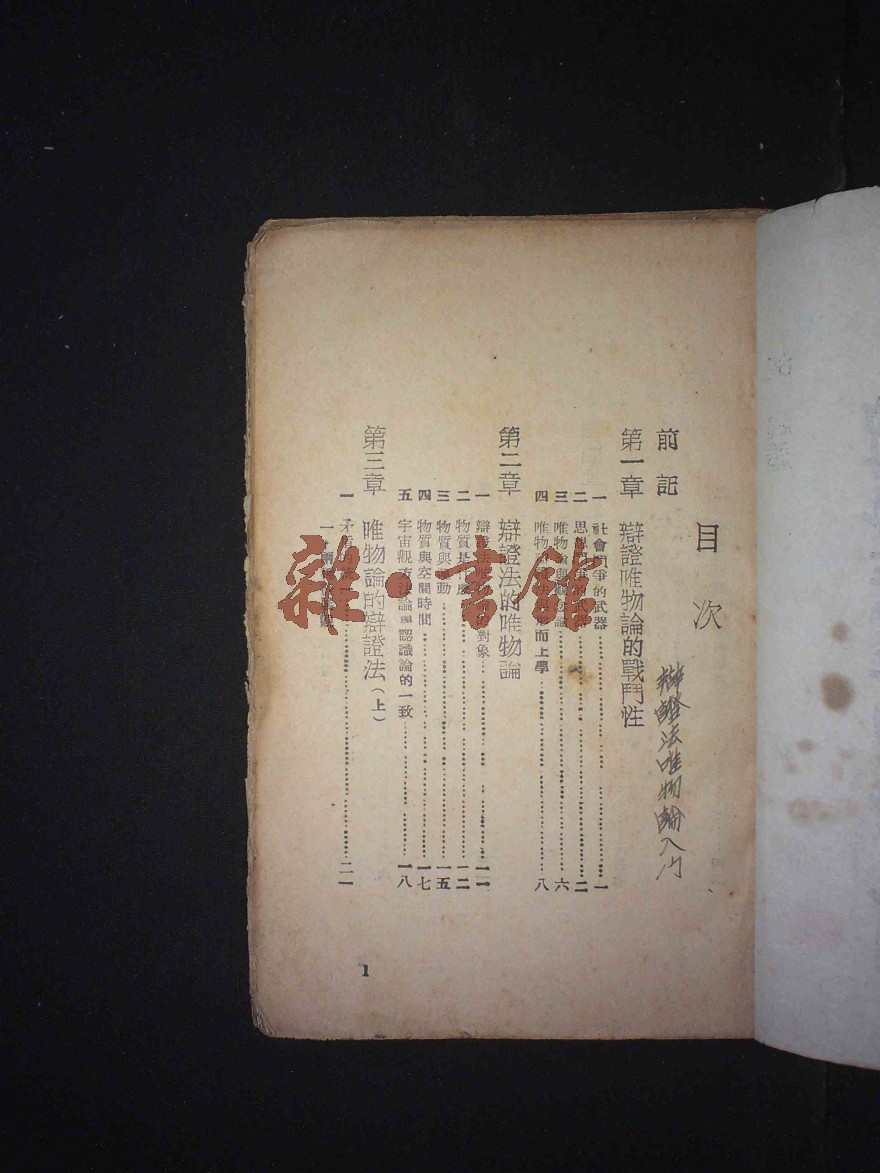 目次
辯證法唯物論入门
前記
第一章 辯證唯物論的戰鬥性
一 社會鬥爭的武器……一
二 思想鬥爭的武器……二
三 唯物論與觀念論……六
四 唯物……而上學……八
第二章 辯證法的唯物論
一 辯證法唯物……的對象……一一
二 物質是什麼……一二
三 物質與運動……一五
四 物質與空間時間……一七
五 宇宙觀方法論與認識論的一致……一八
第三章 唯物論的辯證法(上)
一 矛盾……二一
1
雜·書館